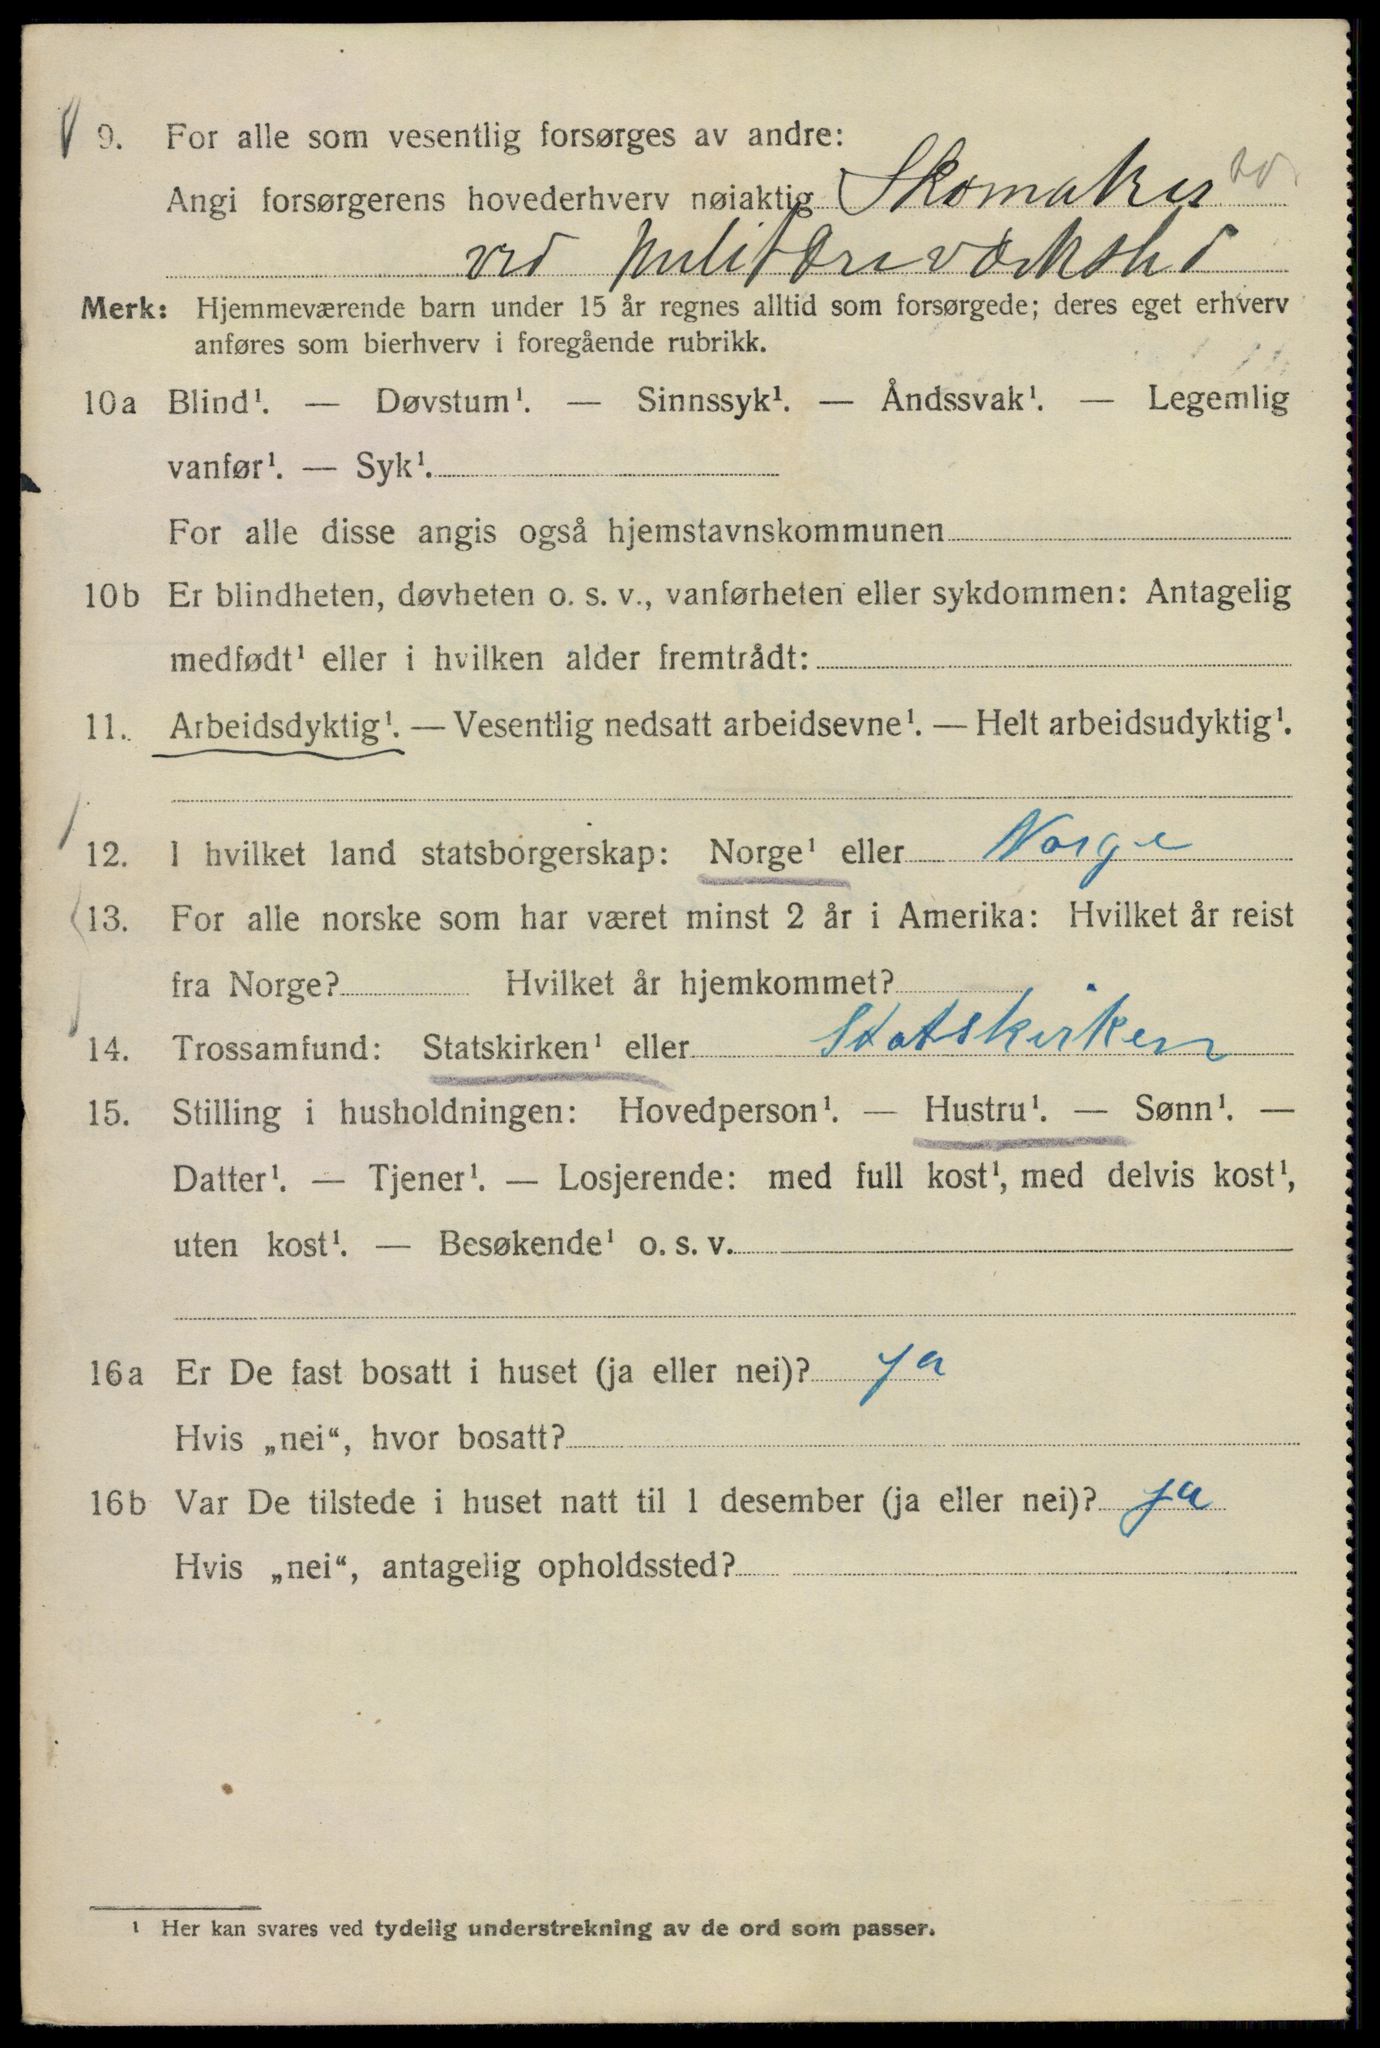 9. For alle som vesentlig forsørges av andre:
Angi forsørgerens hovederhverv nøiaktig Skomaker
ved militære værksted
Merk: Hjemmeværende barn under 15 år regnes alltid som forsørgede; deres eget erhverv
anføres som bierhverv i foregående rubrikk.
10a Blind¹. — Døvstum¹. — Sinnssyk¹. — Åndssvak¹. — Legemlig
vanfør¹. — Syk¹.
For alle disse angis også hjemstavnskommunen
10b Er blindheten, døvheten o. s. v., vanførheten eller sykdommen: Antagelig
medfødt¹ eller i hvilken alder fremtrådt:
11. Arbeidsdyktig¹. — Vesentlig nedsatt arbeidsevne¹. — Helt arbeidsudyktig¹.
12. I hvilket land statsborgerskap: Norge¹ eller Norge
13. For alle norske som har været minst 2 år i Amerika: Hvilket år reist
fra Norge? Hvilket år hjemkommet?
14. Trossamfund: Statskirken¹ eller Statskirken
15. Stilling i husholdningen: Hovedperson¹. — Hustru¹. — Sønn¹. —
Datter¹. — Tjener¹. — Losjerende: med full kost¹, med delvis kost¹,
uten kost¹. — Besøkende¹ o. s. v.
16a Er De fast bosatt i huset (ja eller nei)? ja
Hvis „nei“, hvor bosatt?
16b Var De tilstede i huset natt til 1 desember (ja eller nei)? ja
Hvis „nei“, antagelig opholdssted?
¹ Her kan svares ved tydelig understrekning av de ord som passer.